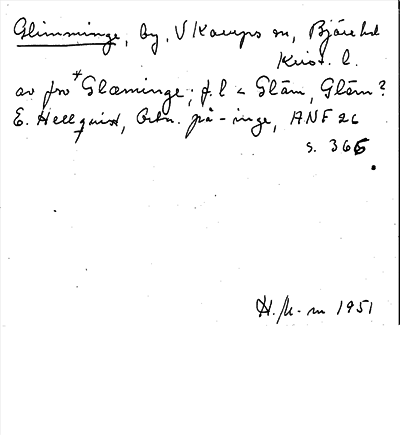 Glimminge, by, V Karups sn, Bjäre hd
Krist. l.
av fno *Glæminge; f.l < Glām, Glām?
E. Hellquist, Ortn. på -inge, ANF 26
s. 366
H. 1951